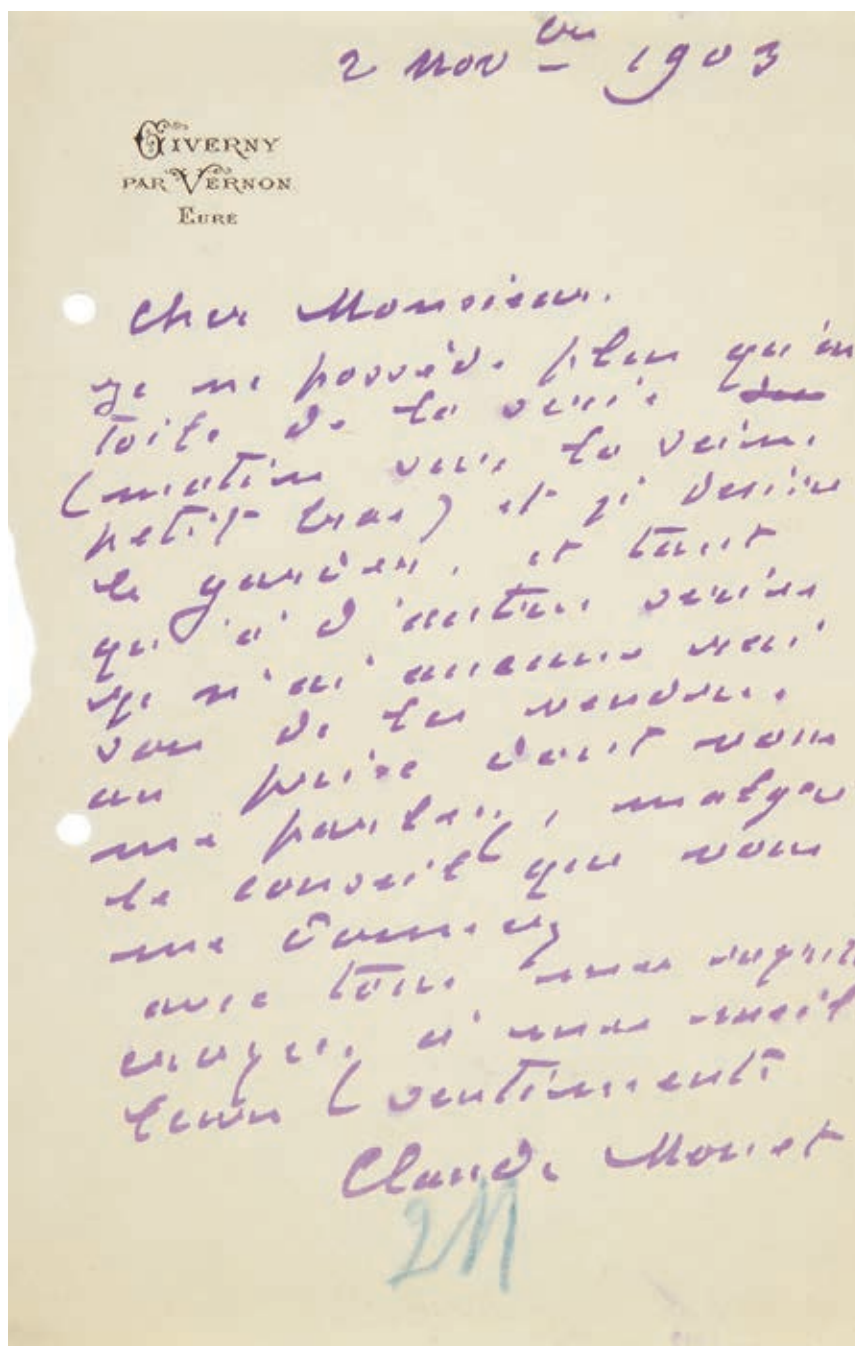 2 novbre 1903
GIVERNY
PAR VERNON
EURE
Cher Monsieur.
je ne possède plus qu'un
toile de la série
(matin sur la seine.
petit bras) et je desire
la garder. et tant
qu'à d'autres séries
je n'ai aucune rai
son de les vendre.
au prix dont vous
me parlez, malgré
le conseil que vous
me donnez
avec tous mes regrets
croyez à mes meil
leurs sentiments
Claude Monet
2M